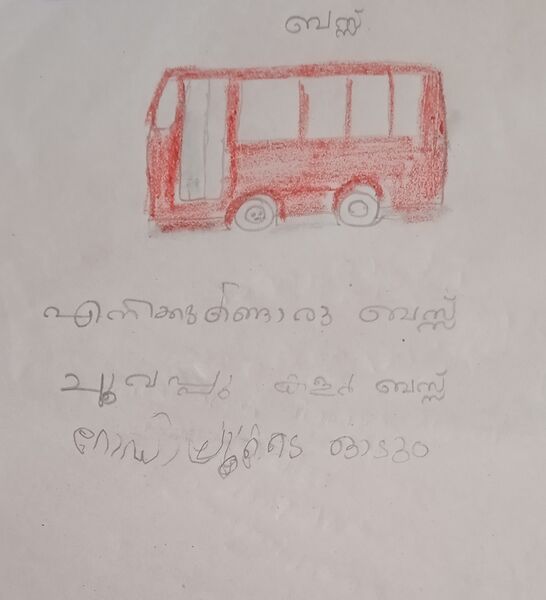 ബസ്സ്
എനിക്കുണ്ടൊരു ബസ്സ്
ചുവപ്പു കളർ ബസ്സ്
റോഡിലൂടെ ഓടും